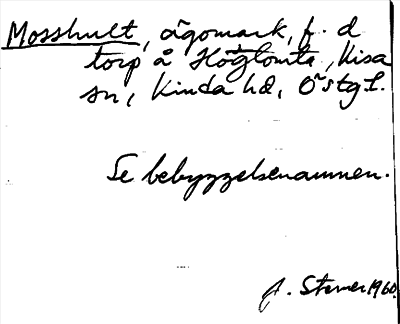 Mosshult, ägomark, f. d
torp å Högtomta, Kisa
sn, Kinda hd, Östgl.
Se bebyggelsenamnen.
J. Sterner 1960.